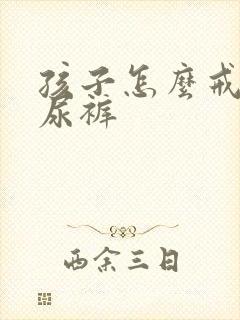 孩子怎麼戒
尿褲
西余三日